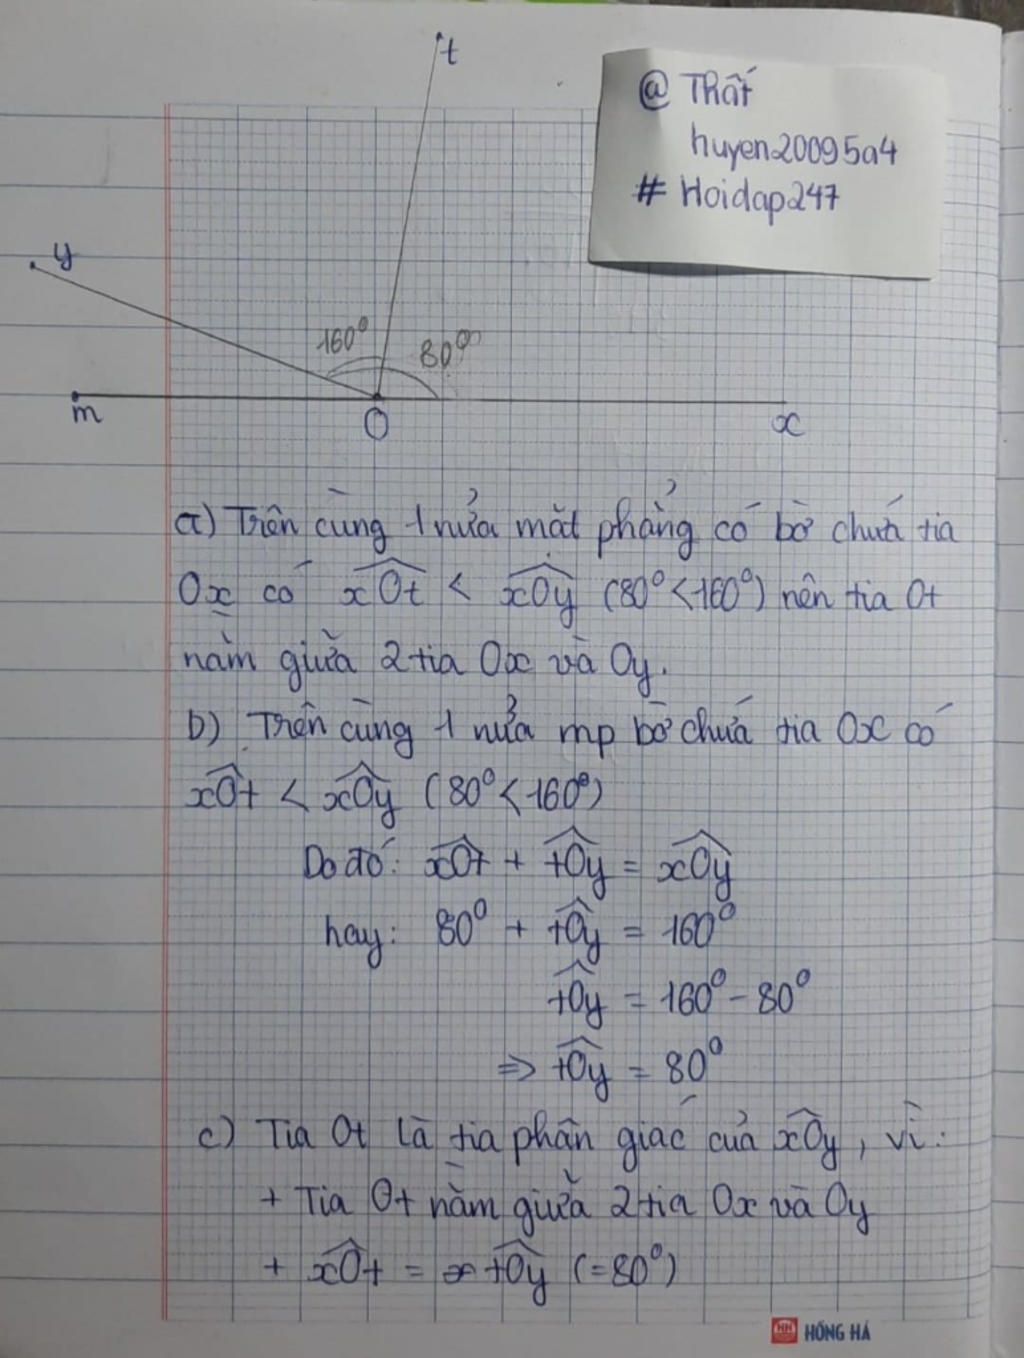 t
@ Thất
huyen20095a4
# Hoidap247
y
160°
80°
m
O
x
a) Trên cùng 1 nửa mặt phẳng có bờ chứa tia
Ox có xOt < xOy (80° < 160°) nên tia Ot
nằm giữa 2 tia Ox và Oy.
b) Trên cùng 1 nửa mp bờ chứa tia Ox có
xOt < xOy (80° < 160°)
Do đó: xOt + tOy = xOy
hay: 80° + tOy = 160°
tOy = 160° - 80°
=> tOy = 80°
c) Tia Ot là tia phân giác của xOy, vì:
+ Tia Ot nằm giữa 2 tia Ox và Oy
+ xOt = tOy (=80°)
HH HỒNG HÀ